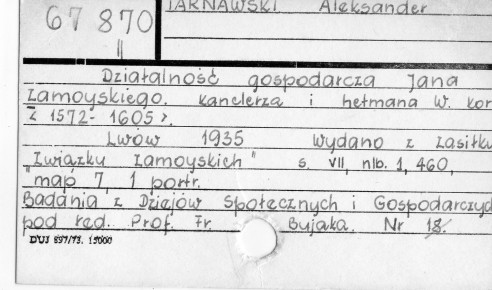 67 870
TARNAWSKI Aleksander
Działalność gospodarcza Jana
Zamoyskiego, kanclerza i hetmana w. kor
< 1572- 1605 >.
Lwów 1935 Wydano z zasiłku
"Związku Zamoyskich" s. VII, nlb. 1, 460,
map 7, 1 portr.
Badania z Dziejów Społecznych i Gospodarczych
pod red. Prof. Fr Bujaka. Nr 18.
DUJ 897/73. 15000